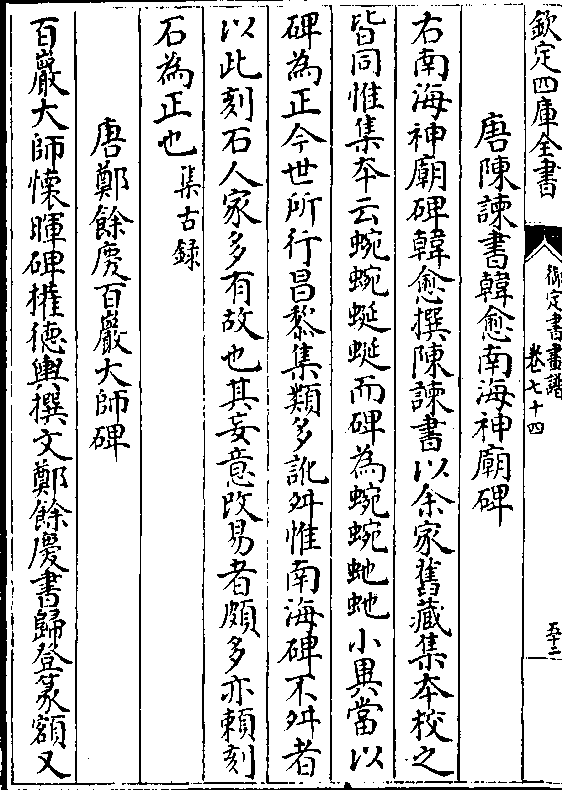 欽定四庫全書
御定書畫譜
卷七十四
五十二
唐陳諫書韓愈南海神廟碑
右南海神廟碑韓愈撰陳諫書以余家舊藏集本校之
皆同惟集本云蜿蜿蜒蜒而碑為蜿蜿虵虵小異當以
碑為正今世所行昌黎集類多訛舛惟南海碑不舛者
以此刻石人家多有故也其妄意改易者頗多亦賴刻
石為正也集古録
唐鄭餘慶百巖大師碑
百巖大師懷暉碑權徳輿撰文鄭餘慶書歸登篆額又